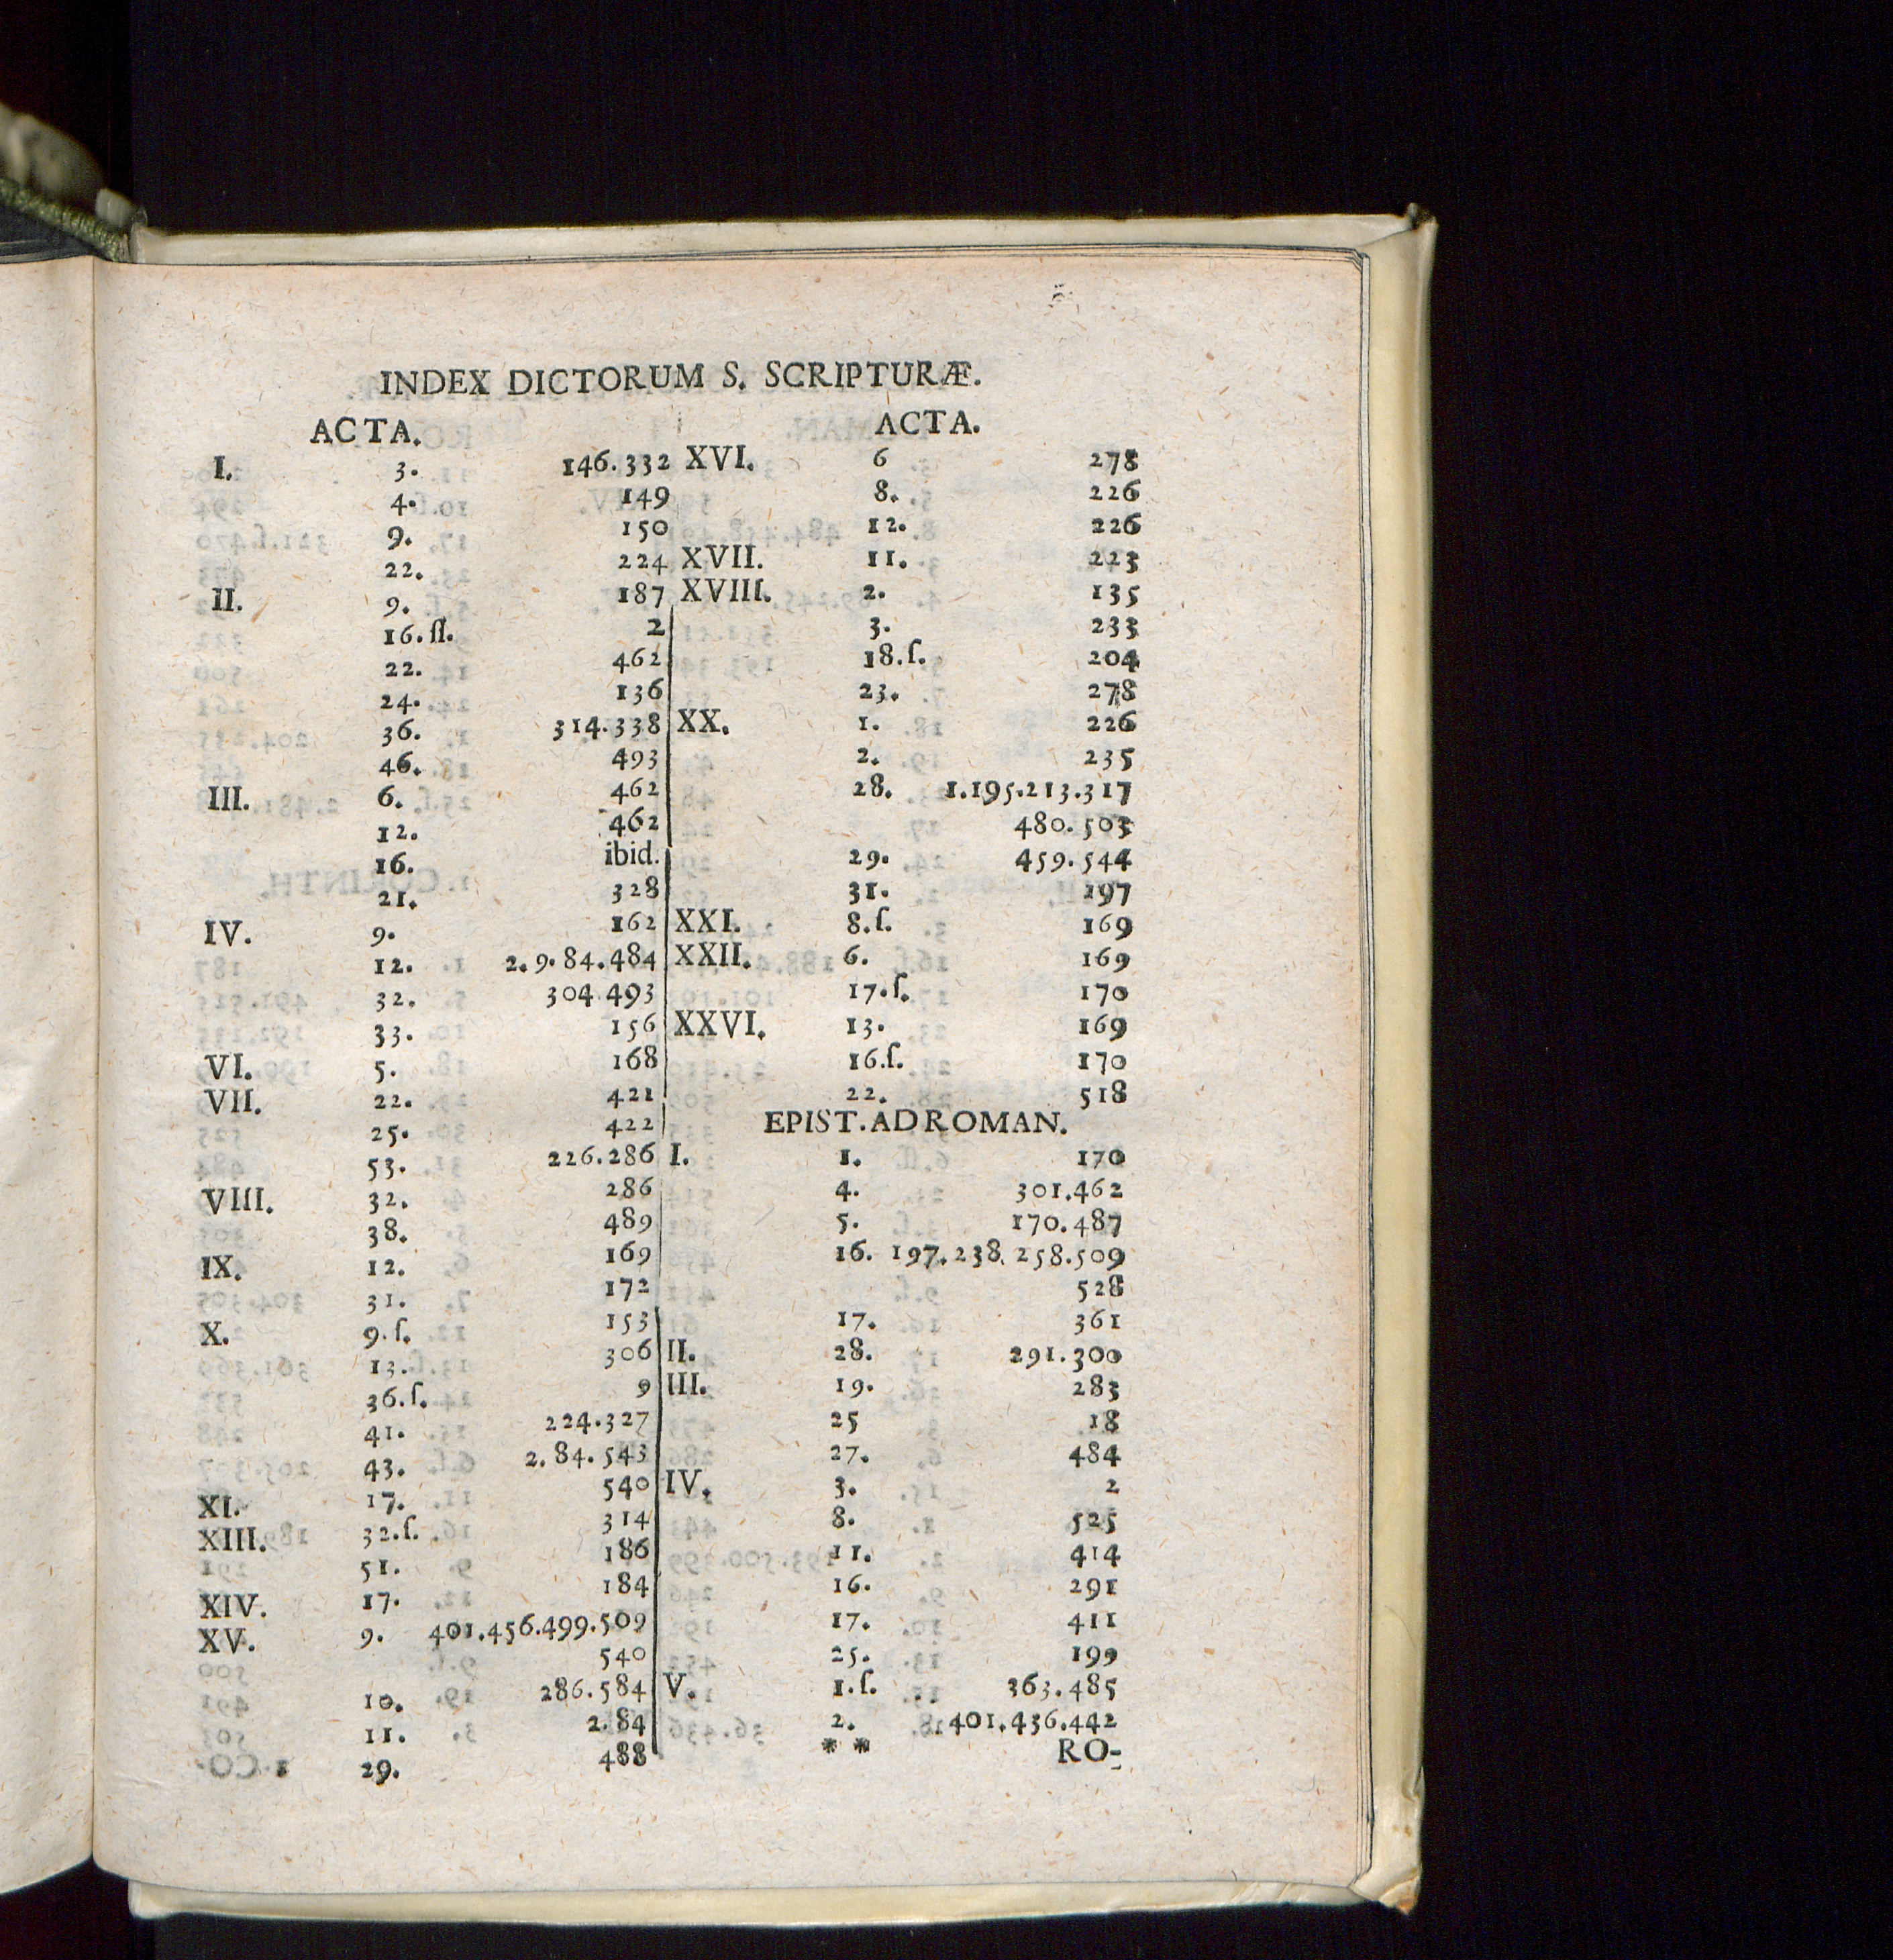 INDEX DICTORUM S. SCRIPTURÆ.
ACTA.
I. 3. 146.332
4. 149
9. 150
22. 224
II. 9. 187
16.ſſ. 2
22. 462
24. 136
36. 314.338
46. 493
III. 6. 462
12. 462
16. ibid.
21. 328
IV. 9. 162
12. 2.9.84.484
32. 304.493
33. 156
VI. 5. 168
VII. 22. 421
25. 422
53. 226.286
VIII. 32. 286
38. 489
IX. 12. 169
31. 172
X. 9.ſ. 153
13. 306
36.ſ. 9
41. 224.327
43. 2.84.543
XI. 17. 540
XIII. 32.ſ. 314
51. 186
XIV. 17. 184
XV. 9. 401.456.499.509
540
10. 286.584
11. 2.84
29. 488
ACTA.
XVI. 6 278
8. 226
12. 226
XVII. 11. 223
XVIII. 2. 135
3. 233
18.ſ. 204
23. 278
XX. 1. 226
2. 235
28. 1.195.213.317
480.503
29. 459.544
31. 197
XXI. 8.ſ. 169
XXII. 6. 169
17.ſ. 170
XXVI. 13. 169
16.ſ. 170
22. 518
EPIST. AD ROMAN.
I. 1. 170
4. 301.462
5. 170.487
16. 197.238.258.509
528
17. 361
II. 28. 291.300
III. 19. 283
25 18
27. 484
IV. 3. 2
8. 525
11. 414
16. 291
17. 411
25. 199
V. 1.ſ. 363.485
2. 401.436.442
* * RO-